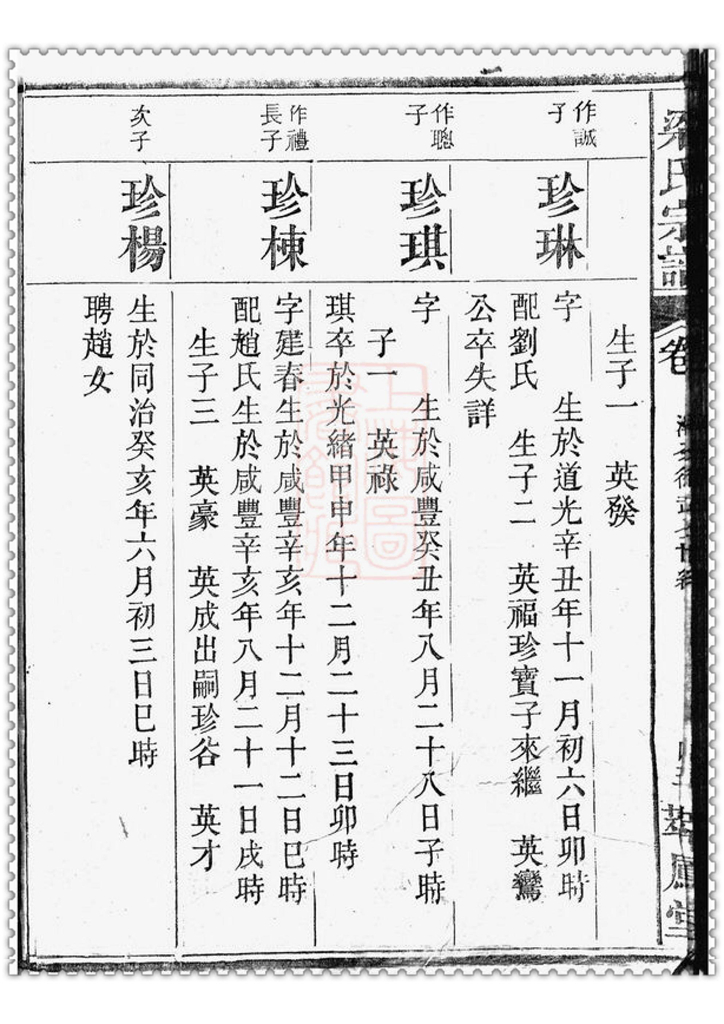 梁氏宗譜
卷
鳳堂
生子一　英發
作誠
子
珍琳
字　生於道光辛丑年十一月初六日卯時
配劉氏　生子二　英福珍寶子來繼　英鸞
公卒失詳
作聰
子
珍琪
字　生於咸豐癸丑年八月二十八日子時
子一　英祿
琪卒於光緒甲申年十二月二十三日卯時
作禮
長子
珍棟
字建春生於咸豐辛亥年十二月十二日巳時
配趙氏生於咸豐辛亥年八月二十一日戌時
生子三　英豪　英成出嗣珍谷　英才
次子
珍楊
生於同治癸亥年六月初三日巳時
聘趙女